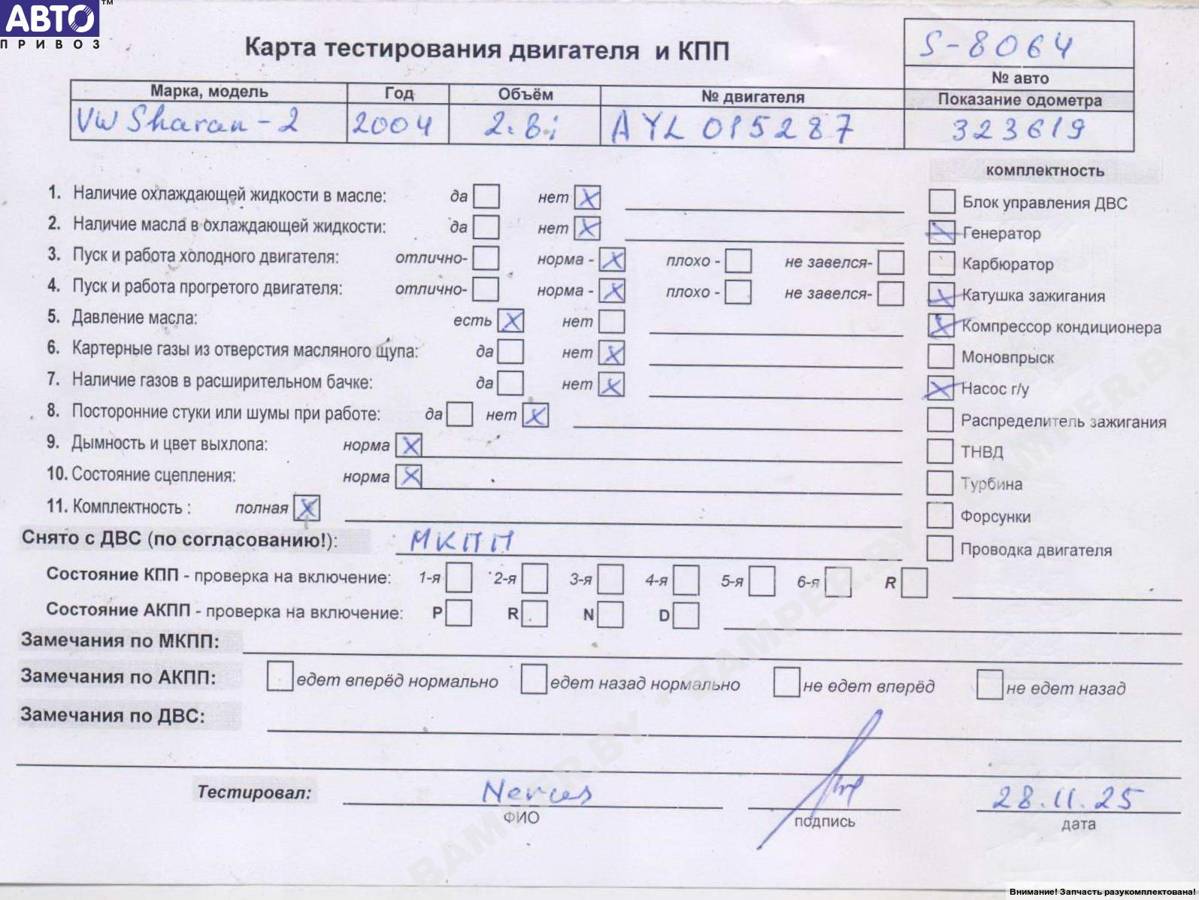 АВТО™
ПРИВОЗ
Карта тестирования двигателя и КПП
S-8064
№ авто
Марка, модель Год Объём № двигателя Показание одометра
VW Sharan-2 2004 2.8i AYL 015287 323619
комплектность
1. Наличие охлаждающей жидкости в масле: да нет X
Блок управления ДВС
2. Наличие масла в охлаждающей жидкости: да нет X
X Генератор
3. Пуск и работа холодного двигателя: отлично- норма - X плохо - не завелся-
Карбюратор
4. Пуск и работа прогретого двигателя: отлично- норма - X плохо - не завелся-
X Катушка зажигания
5. Давление масла: есть X нет
X Компрессор кондиционера
6. Картерные газы из отверстия масляного щупа: да нет X
Моновпрыск
7. Наличие газов в расширительном бачке: да нет X
X Насос г/у
8. Посторонние стуки или шумы при работе: да нет X
Распределитель зажигания
9. Дымность и цвет выхлопа: норма X
ТНВД
10. Состояние сцепления: норма X
Турбина
11. Комплектность : полная X
Форсунки
Снято с ДВС (по согласованию!): МКПП
Проводка двигателя
Состояние КПП - проверка на включение: 1-я 2-я 3-я 4-я 5-я 6-я R
Состояние АКПП - проверка на включение: P R N D
Замечания по МКПП:
Замечания по АКПП: едет вперёд нормально едет назад нормально не едет вперёд не едет назад
Замечания по ДВС:
Тестировал: 28.11.25
ФИО подпись дата
BAMPER.BY • BAMPER.BY • BAMPER.BY
Внимание! Запчасть разукомплектована!